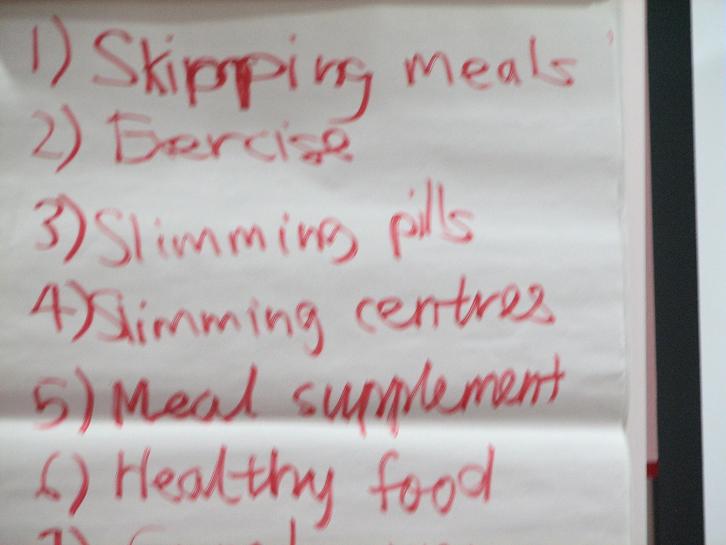 1) Skipping meals
2) Exercise
3) Slimming pills
4) Slimming centres
5) Meal supplement
6) Healthy food
7)